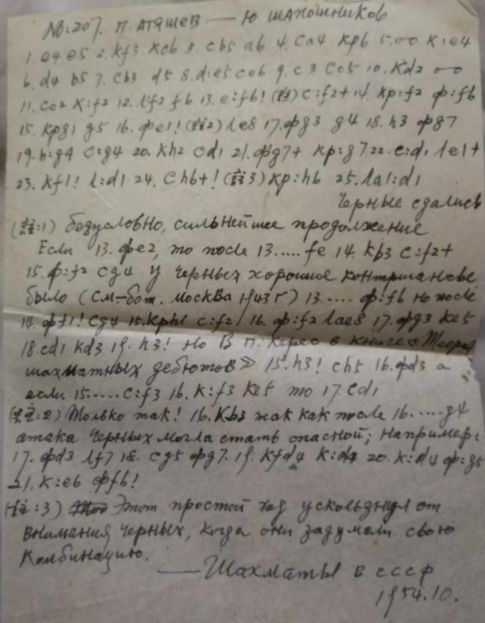 No:207. П. Аташев — Ю Шапошников
1. e4 e5 2. Kf3 Kc6 3. Cb5 a6 4. Ca4 Kf6 5. 00 K:e4
6. d4 b5 7. Cb3 d5 8. d:e5 Ce6 9. c3 Cc5 10. Kd2 00
11. Cc2 K:f2 12. Лf2 f6 13. e:f6! (註1) C:f2+ 14. Kp:f2 ф:f6
15. Kpg1 g5 16. Фe1! (註2) Лe8 17. фg3 g4 18. h3 фg7
19. h:g4 C:g4 20. Kh2 Cd1 21. фg7+ Kp:g7 22. C:d1 Лe1+
23. Kf1! Л:d1 24. Ch6+! (註3) Kp:h6 25. Лa1:d1
Черные сдались
(註:1) Безусловно, сильнейшее продолжение
Если 13. фe2, то после 13..... fe 14. Kb3 C:f2+
15. ф:f2 Cg4 у черных хорошие контршансы
было (См-бот. Москва 1943г) 13.... ф:f6 но после
14. фf1! Cg4 15. Kph1 C:f2 16. ф:f2 Лae8 17. фg3 Ke5
18. Cd1 Kd3 19. h3! Но В П. Керес в книге «Теория
шахматных дебютов» 15. h3! Ch5 16. фd3 а
если 15..... C:f3 16. K:f3 Ke5 то 17. Cd1
(註:2) Только так! 16. Kb3 так как после 16..... g4
атака черных могла стать опасной; например:
17. фd3 Лf7 18. Cg5 фg7. 19. Kfd4 K:d4 20. K:d4 ф:g5
21. K:e6 фf6!
(註:3) Этот простой ход ускользнул от
внимания черных, когда они задумали свою
комбинацию.
— Шахматы в СССР
1954.10.